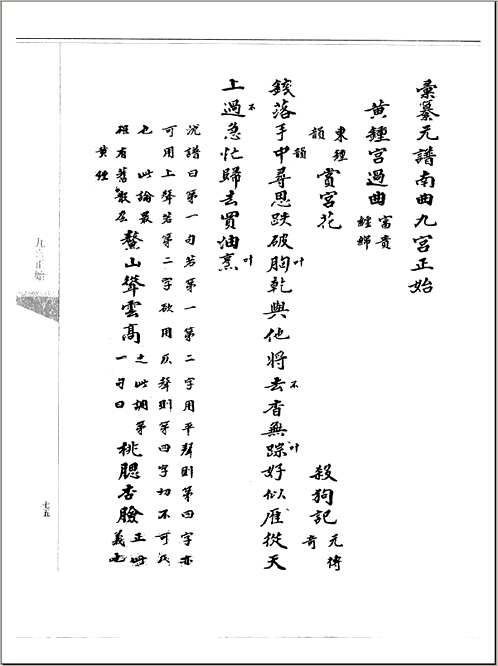 彙纂元譜南曲九宮正始
黃鍾宮過曲 富貴
東鍾韻 賞宮花 殺狗記 元傳奇
錢落手中韻尋思跌破胸叶乾與他將去不杳無踪叶好似雁從天
上過不急忙歸去買油烹叶
沈譜曰第一句若第一第二字用平聲則第四字亦
可用上聲若第二字欲用仄聲則第四字切不可仄
也 此論最 鰲山聳雲高 之此調第 桃腮杏臉 正
有舊散套 一句曰 義也
黃鍾
九宮正始
七五